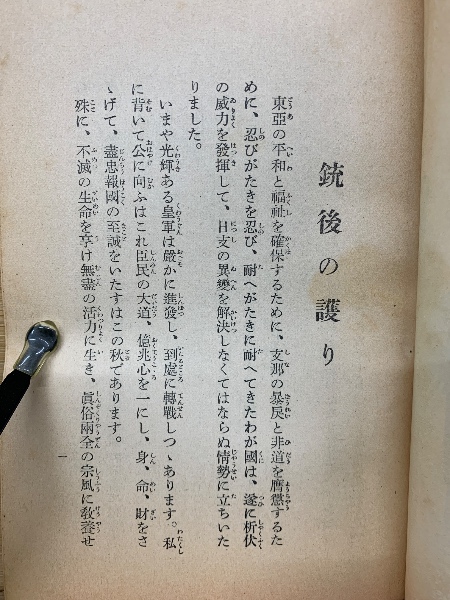 銃後の護り
東亞の平和と福祉を確保するために、支那の暴戾と非道を膺懲するた
めに、忍びがたきを忍び、耐へがたきに耐へてきたわが國は、遂に析伏
の威力を發揮して、日支の異變を解決しなくてはならぬ情勢に立ちいた
りました。
いまや光輝ある皇軍は嚴かに進發し、到處に轉戰しつゝあります。私
に背いて公に向ふはこれ臣民の大道、億兆心を一にし、身、命、財をさ
ゝげて、盡忠報國の至誠をいたすはこの秋であります。
殊に、不滅の生命を享け無盡の活力に生き、眞俗兩全の宗風に敎養せ
一